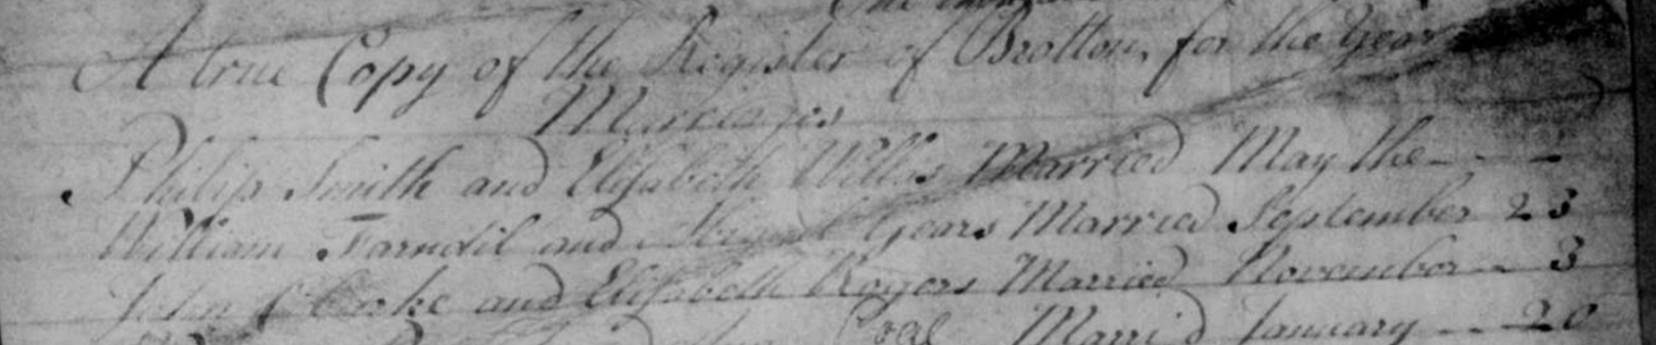 A true Copy of the Register of Brotton, for the Year
Marriages
Philip Smith and Elisabeth Willis Married May the
William Farndil and Gears Married September 23
John and Elisabeth Rogers Married November 3
Married January 20